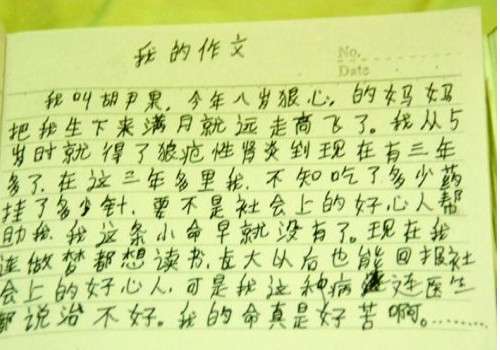 我的作文
No.
Date
我叫胡尹果，今年八岁狠心，的妈妈
把我生下来满月就远走高飞了。我从5
岁时就得了狼疮性肾炎到现在有三年
多了，在这三年多里我，不知吃了多少药
挂了多少针，要不是社会上的好心人帮
助我，我这条小命早就没有了。现在我
连做梦都想读书，长大以后也能回报社
会上的好心人，可是我这种病连医生
都说治不好。我的命真是好苦啊。........